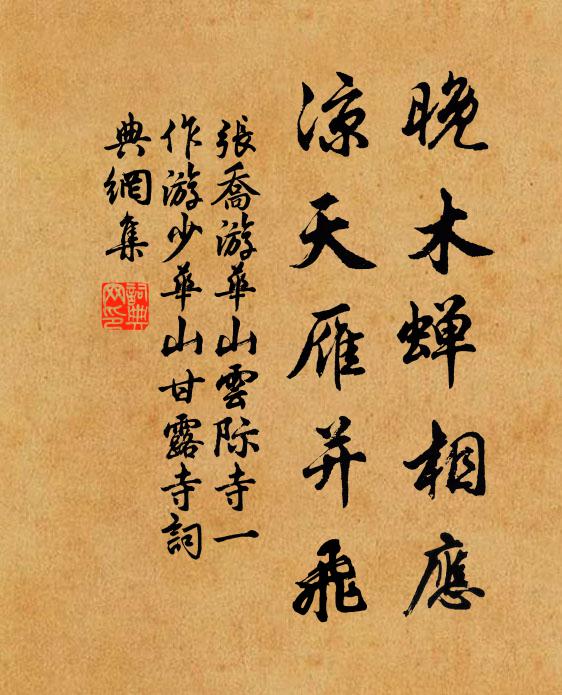 晚木蝉相應
凉天雁并飛
張喬游華山雲際寺一
作游少華山甘露寺詞
典網集
詞典網印